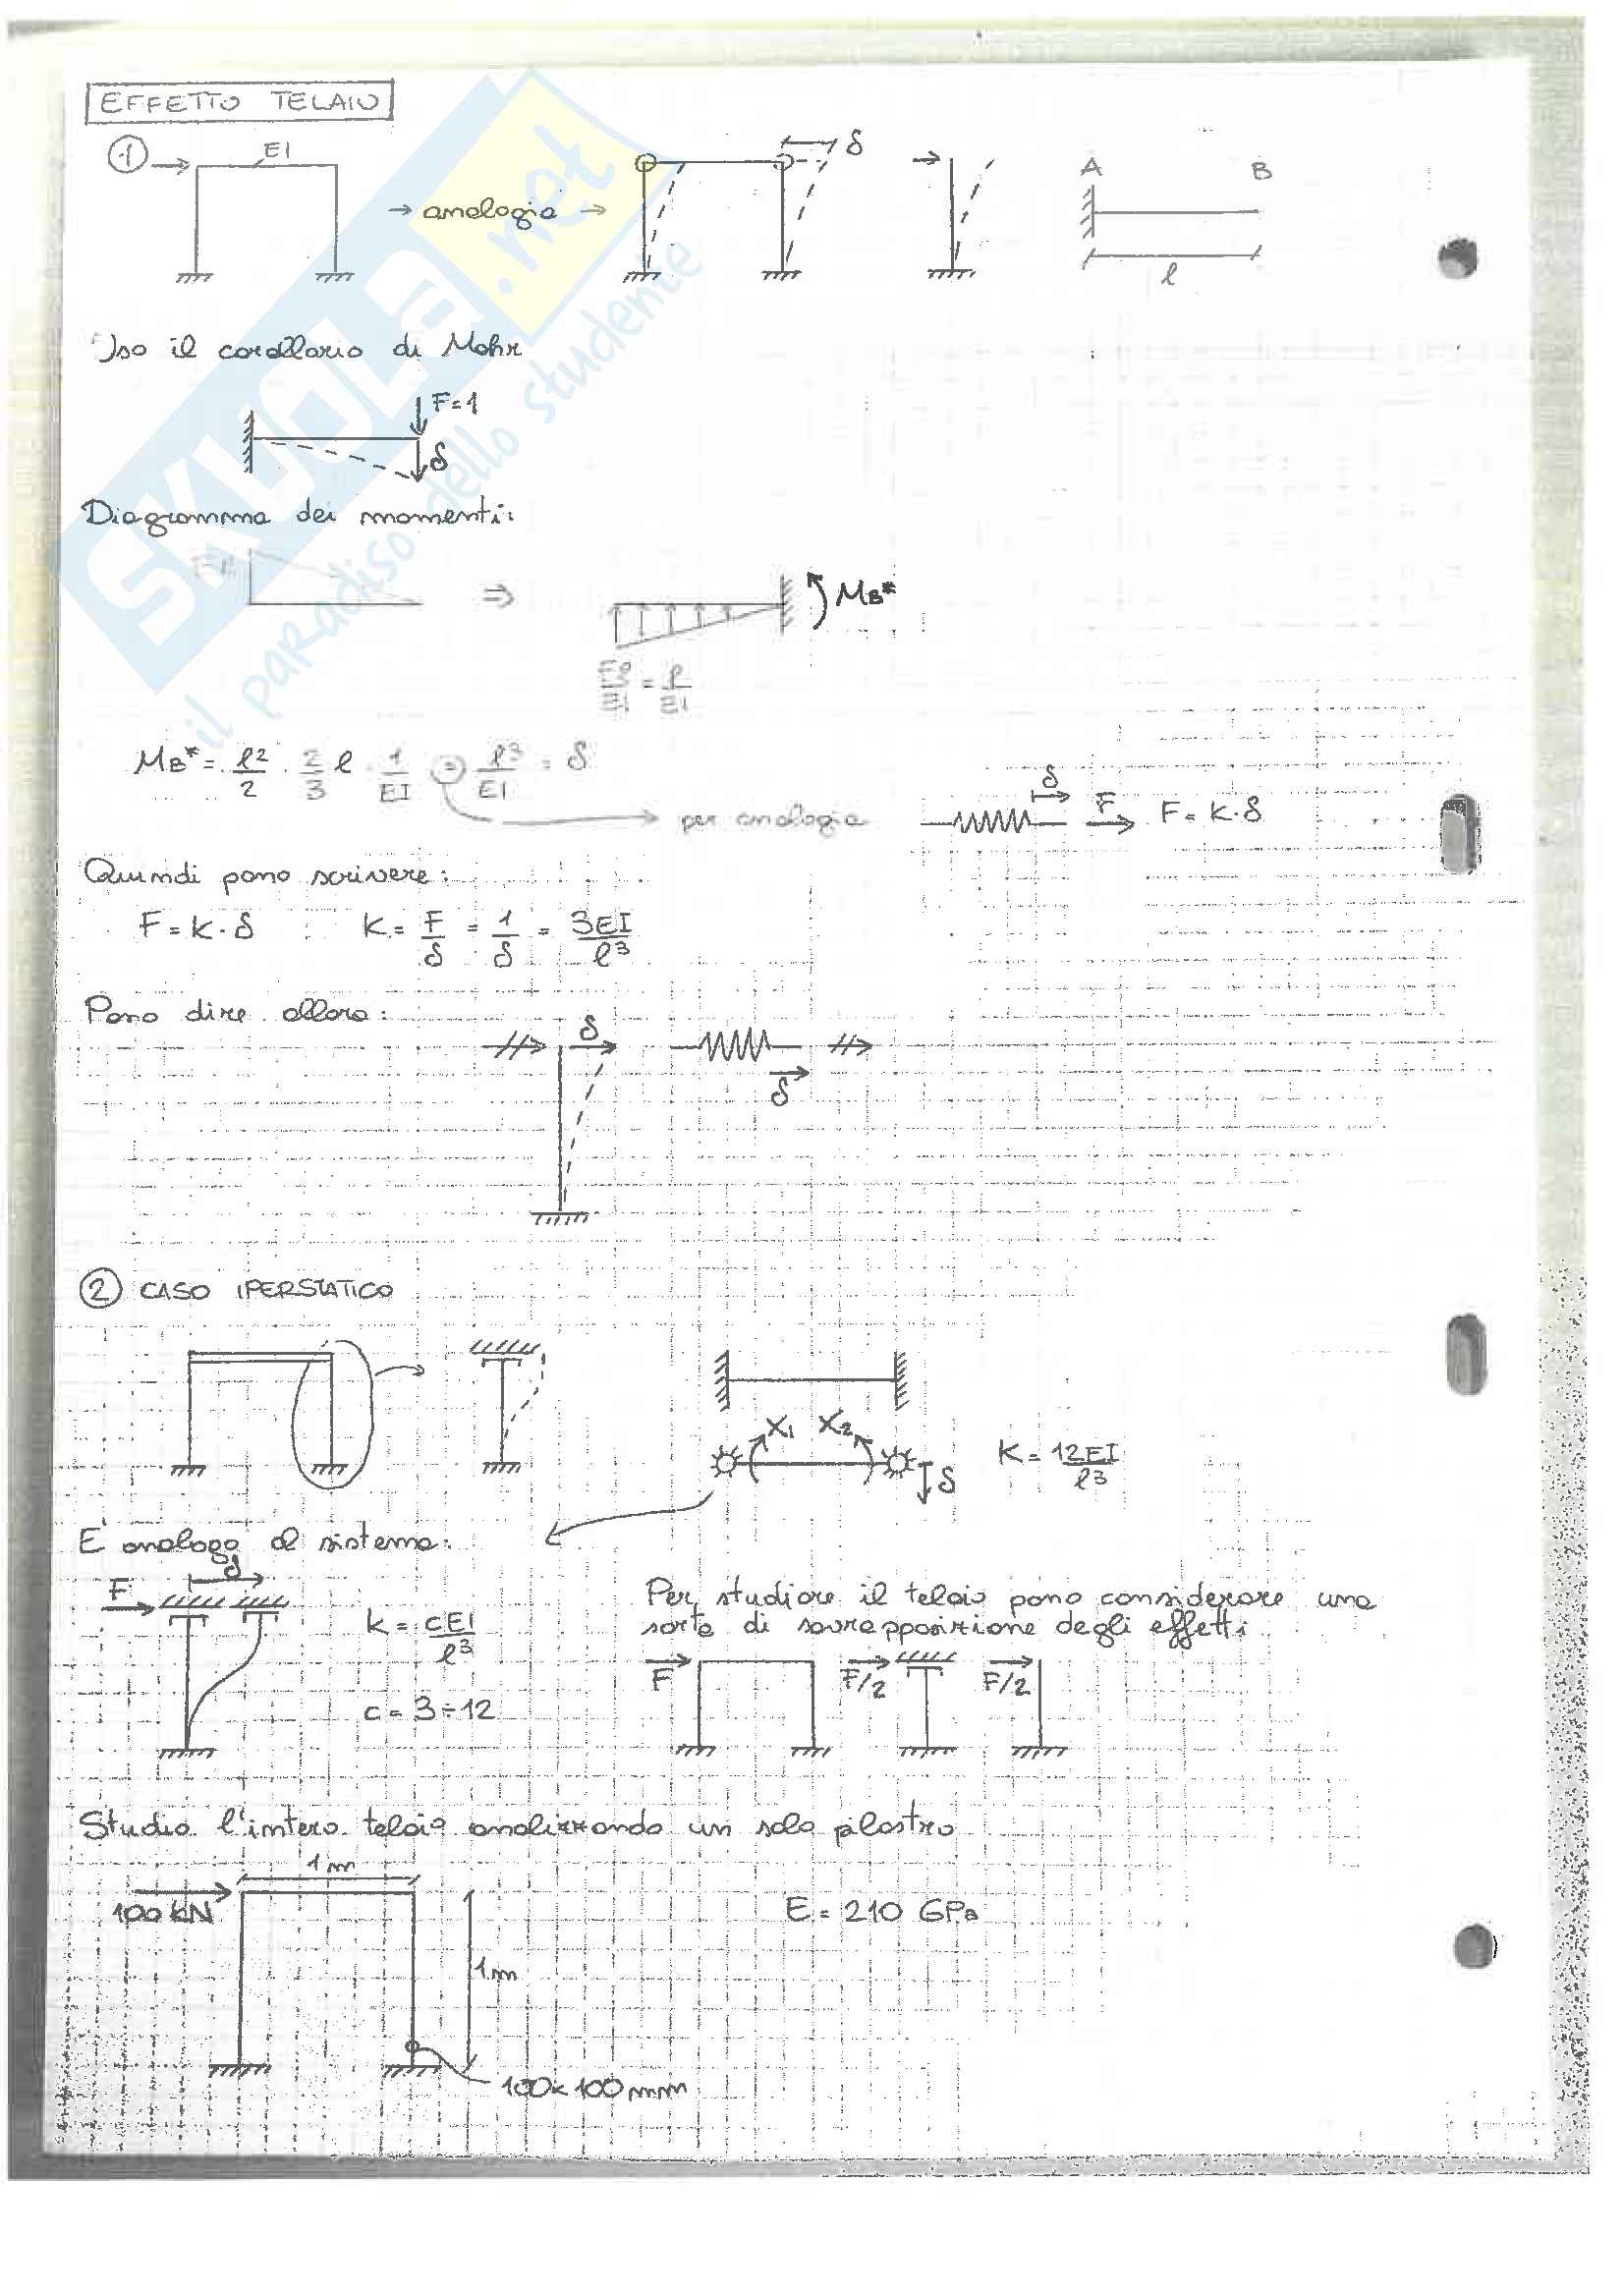 EFFETTO TELAIO
1 EI → analogia → δ A B
l
Uso il corollario di Mohr
F=1
δ
Diagramma dei momenti:
Fl ⇒ MB*
Fl/EI = l/EI
MB* = l²/2 · 2/3 l · 1/EI = l³/EI = δ
per analogia δ F F = K·δ
Quindi posso scrivere:
F = K·δ K = F/δ = 1/δ = 3EI/l³
Posso dire allora:
δ
δ
2 CASO IPERSTATICO
X1 X2
δ
K = 12EI/l³
E analogo al sistema:
F δ
k = cEI/l³
c = 3÷12
Per studiare il telaio posso considerare una
sorta di sovrapposizione degli effetti
F F/2 F/2
Studio l'intero telaio analizzando un solo pilastro
1m
100 kN
E = 210 GPa
1m
100x100mm
SKUOLA.net
il paradiso dello studente